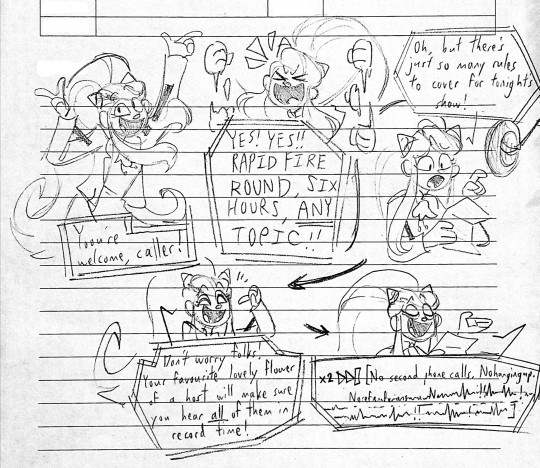 Yoou're
welcome, caller!
YES! YES!!
RAPID FIRE
ROUND, SIX
HOURS, ANY
TOPIC!!
Oh, but there's
just so many rules
to cover for tonight's
show!
Don't worry folks,
Your favourite lovely flower
of a host will make sure
you hear all of them in
record time!
x2 [No second phone calls. No hanging up.
!!
!!]